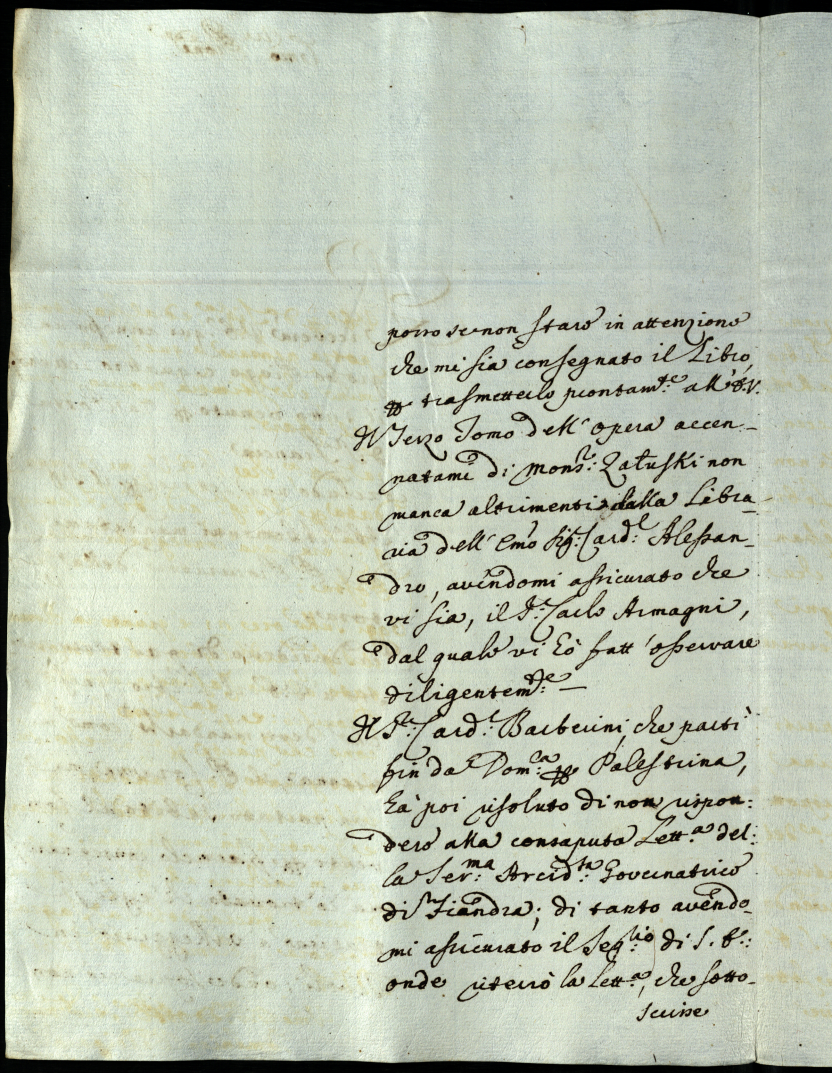 porrò se non starò in attenzione
che mi sia consegnato il Libro,
trasmetterlo prontam.te all'
Il Terzo Tomo dell'opera accen-
natami di Mons.r Załuski non
manca altrimenti dalla Libra-
ria dell'Emo Sig.r Card.l Alessan-
dro, avendomi assicurato che
vi sia, il S.r Carlo Armagni,
dal quale vi hò fatt'osservare
diligentem.te —
Il S.r Card.l Barberini, che partì
fin da Dom.ca Palestrina,
hà poi risoluto di non rispon:
dere alla consaputa Lett.a del:
la Ser.ma Arcid.ssa Governatrice
di Fiandra; di tanto avendo-
mi assicurato il Seg.rio di S. E.:
onde riterrò la Lett.a, che sotto-
scrisse